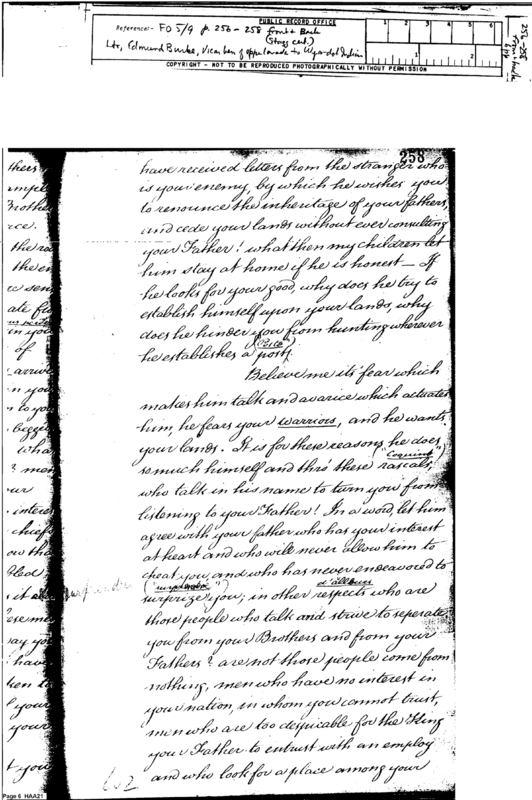 PUBLIC RECORD OFFICE
Reference:- FO 5/9 p. 256 - 258 front & Back
Ltr, Edmund Burke, Vicar Gen of Upper Canada to Wyandot Indian
COPYRIGHT - NOT TO BE REPRODUCED PHOTOGRAPHICALLY WITHOUT PERMISSION
1 2 3 4 5 6
1 2
256-258
258
have received letters from the stranger who
is your enemy, by which he wishes you
to renounce the inheritage of your fathers,
and cede your lands without ever consulting
your Father! what then my children let
him stay at home if he is honest — If
he looks for your good, why does he try to
establish himself upon your lands, why
does he hinder you from hunting wherever
("Poste")
he establishes a post?
Believe me its' fear which
makes him talk and avarice which actuates
him, he fears your warriors, and he wants
your lands. It is for these reasons he does
("Coquins")
so much himself and thro' these rascals,
who talk in his name to turn you from
listening to your Father! In a word, let him
agree with your father who has your interest
at heart and who will never allow him to
cheat you, and who has never endeavored to
d'ailleurs
surprize you; in other respects who are
those people who talk and strive to seperate
you from your Brothers and from your
Fathers? are not those people come from
nothing, men who have no interest in
your nation, in whom you cannot trust,
men who are too despicable for the King
your Father to entrust with an employ
and who look for a place among your
Page 6 HAA21